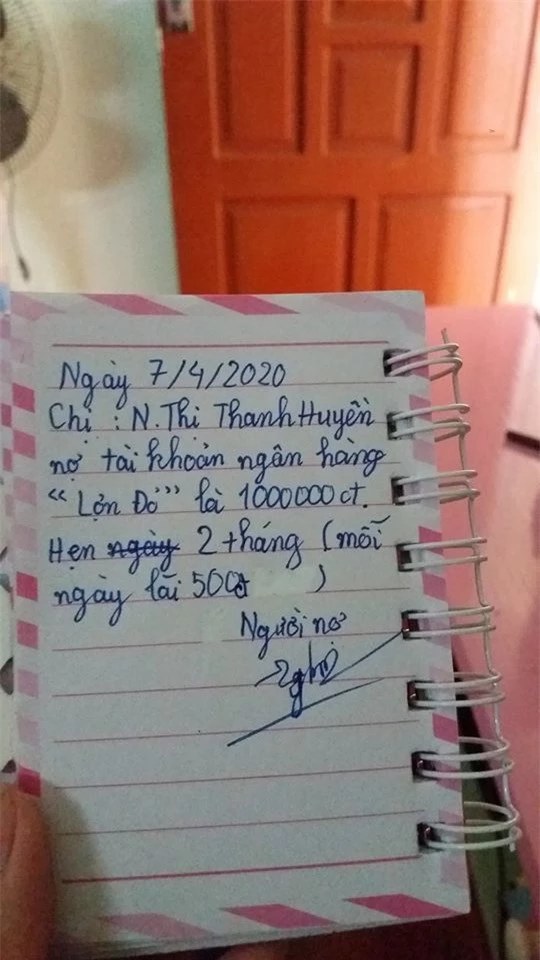 Ngày 7/4/2020
Chị : N.Thi Thanh Huyền
nợ tài khoản ngân hàng
“Lợn Đỏ” là 1000000 ct.
Hẹn ngày 2 tháng (mỗi
ngày lãi 500đ )
Người nợ